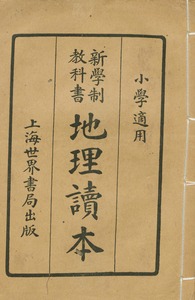 小學適用
新學制
教科書
地理讀本
上海世界書局出版